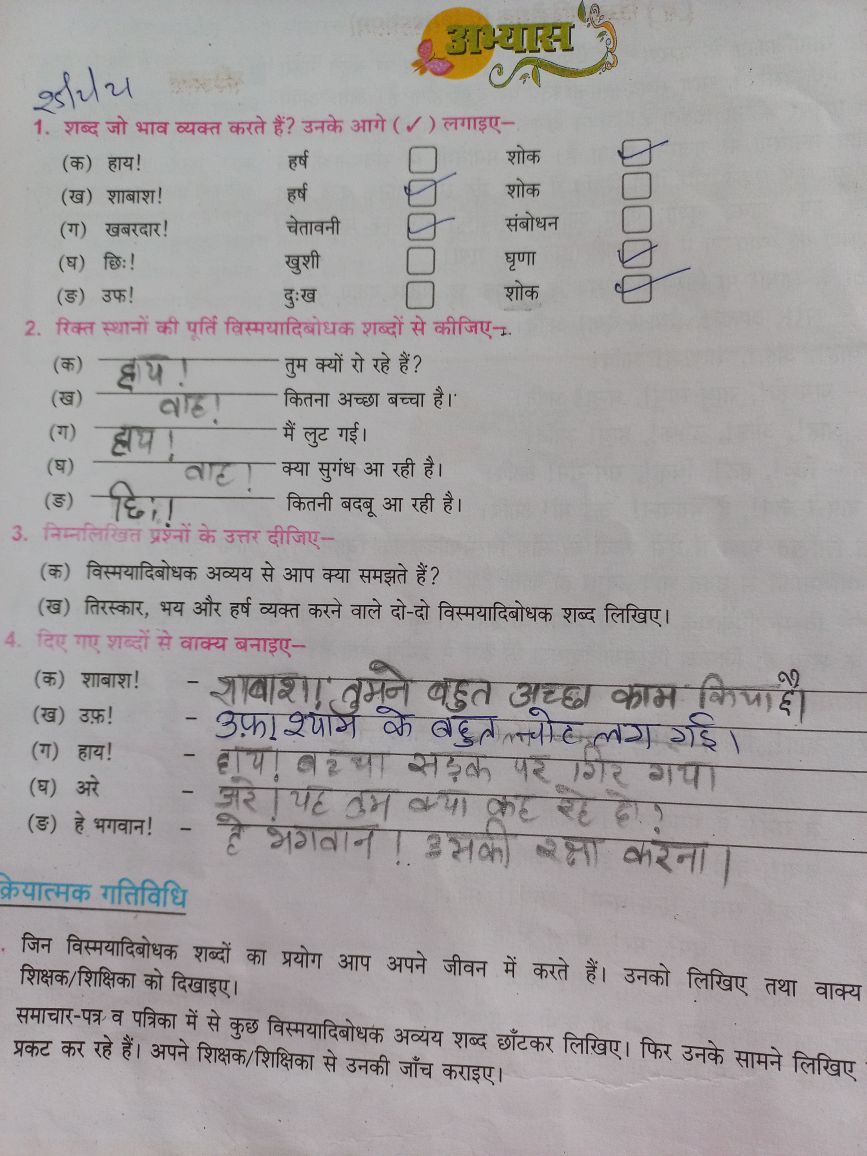 अभ्यास
1. शब्द जो भाव व्यक्त करते हैं? उनके आगे (✓) लगाइए–
(क) हाय! हर्ष शोक ✓
(ख) शाबाश! हर्ष ✓ शोक
(ग) खबरदार! चेतावनी ✓ संबोधन
(घ) छिः! खुशी घृणा ✓
(ङ) उफ! दुःख शोक ✓
2. रिक्त स्थानों की पूर्ति विस्मयादिबोधक शब्दों से कीजिए–
(क) हाय! तुम क्यों रो रहे हैं?
(ख) वाह! कितना अच्छा बच्चा है।
(ग) हाय! मैं लुट गई।
(घ) वाह! क्या सुगंध आ रही है।
(ङ) छिः! कितनी बदबू आ रही है।
3. निम्नलिखित प्रश्नों के उत्तर दीजिए–
(क) विस्मयादिबोधक अव्यय से आप क्या समझते हैं?
(ख) तिरस्कार, भय और हर्ष व्यक्त करने वाले दो-दो विस्मयादिबोधक शब्द लिखिए।
4. दिए गए शब्दों से वाक्य बनाइए–
(क) शाबाश! – शाबाश! तुमने बहुत अच्छा काम किया है।
(ख) उफ़! – उफ़! श्याम के बहुत चोट लग गई।
(ग) हाय! – हाय! बच्चा सड़क पर गिर गया।
(घ) अरे – अरे! यह तुम क्या कह रहे हो?
(ङ) हे भगवान! – हे भगवान! उसकी रक्षा करना।
क्रियात्मक गतिविधि
जिन विस्मयादिबोधक शब्दों का प्रयोग आप अपने जीवन में करते हैं। उनको लिखिए तथा वाक्य
शिक्षक/शिक्षिका को दिखाइए।
समाचार-पत्र व पत्रिका में से कुछ विस्मयादिबोधक अव्यय शब्द छाँटकर लिखिए। फिर उनके सामने लिखिए
प्रकट कर रहे हैं। अपने शिक्षक/शिक्षिका से उनकी जाँच कराइए।